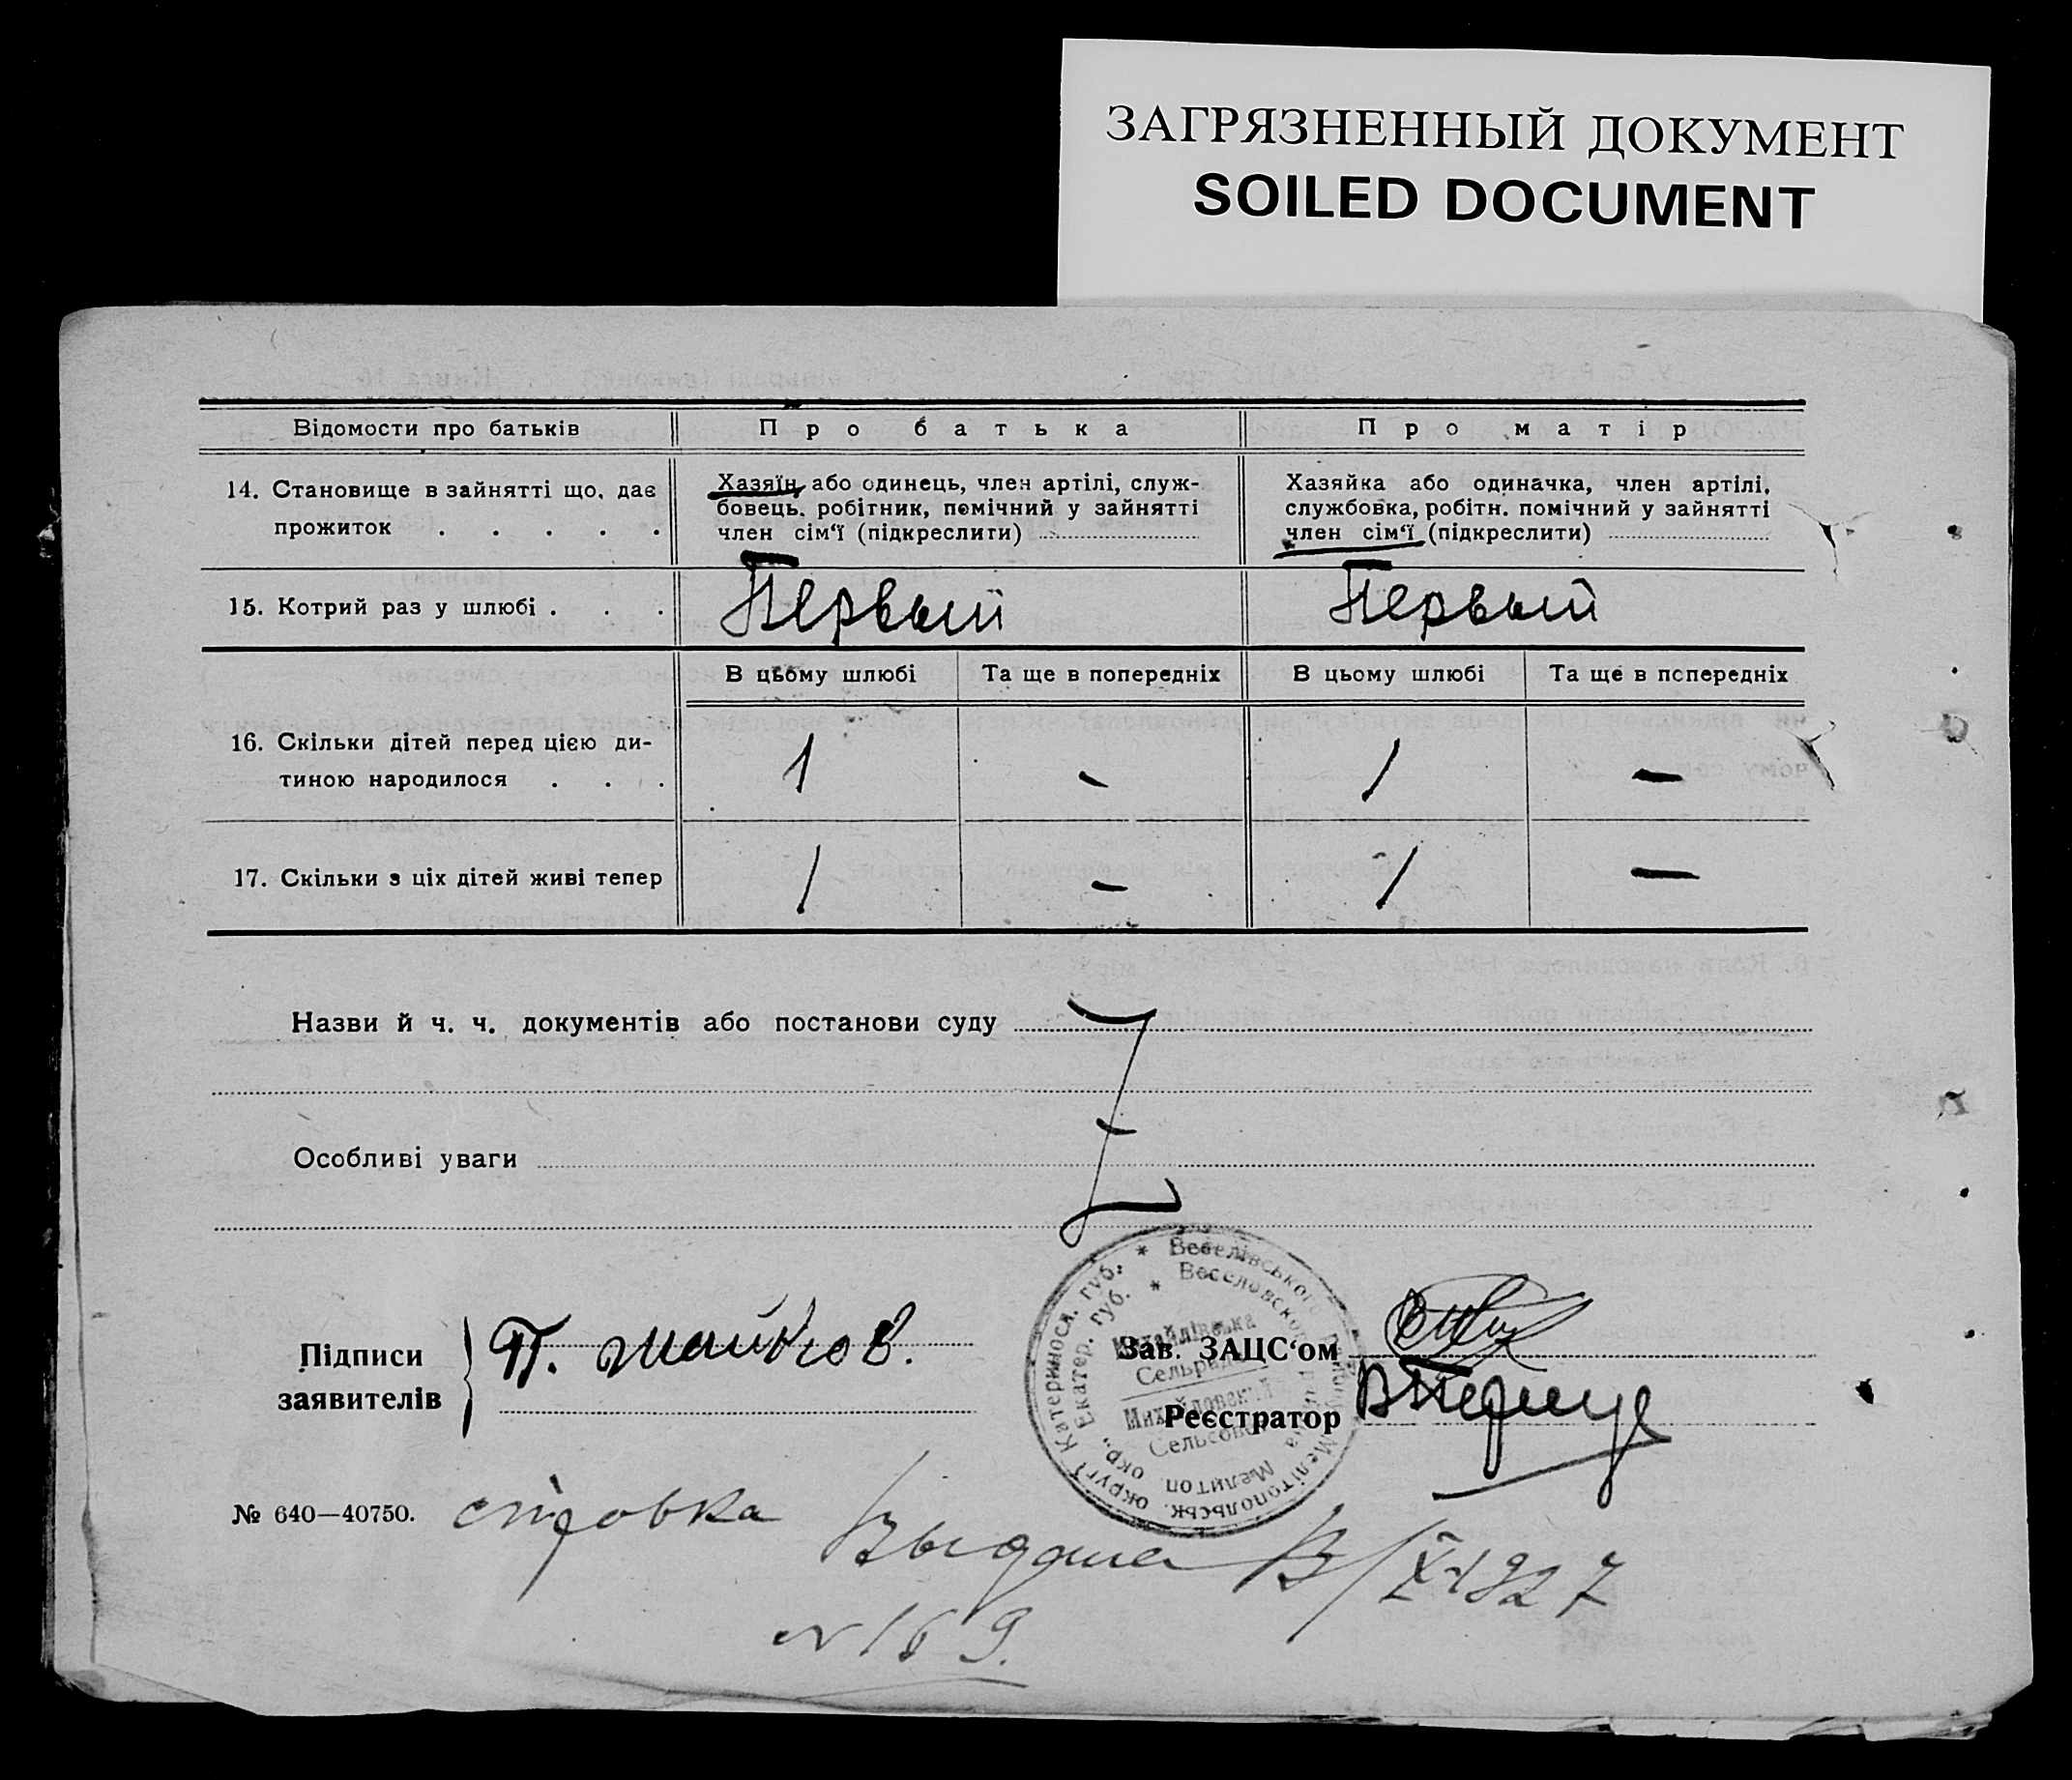 ЗАГРЯЗНЕННЫЙ ДОКУМЕНТ
SOILED DOCUMENT
Відомости про батьків Про батька Про матір
14. Становище в зайнятті що, дає прожиток . . . . .
Хазяїн, або одинець, член артілі, служ-
бовець, робітник, помічний у зайнятті
член сім‘ї (підкреслити)
Хазяйка або одиначка, член артілі,
службовка, робітн. помічний у зайнятті
член сім‘ї (підкреслити)
15. Котрий раз у шлюбі . . . Первый Первый
В цьому шлюбі Та ще в попередніх В цьому шлюбі Та ще в попередніх
16. Скільки дітей перед цією ди-
тиною народилося . . . 1 - 1 —
17. Скільки з ціх дітей живі тепер 1 - 1 —
Назви й ч. ч. документів або постанови суду
Особливі уваги
Підписи
заявителів
П. Майков.
Зав. ЗАЦС‘ом
Реєстратор
* Веселівського Мелітопольськ. округі Катериносл. губ.
* Веселовского Мелитоп. окр. Екатер. губ.
Михайлівська
Сельрада
Михайловский
Сельсовет
№ 640—40750.
справка Выдана 13/X-1927
№ 169.